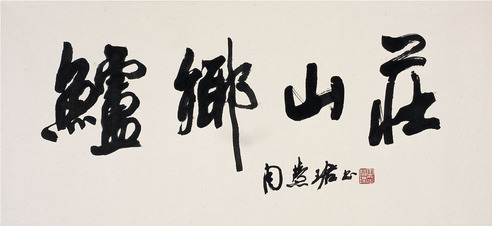 鱸鄉山莊
周慧珺书